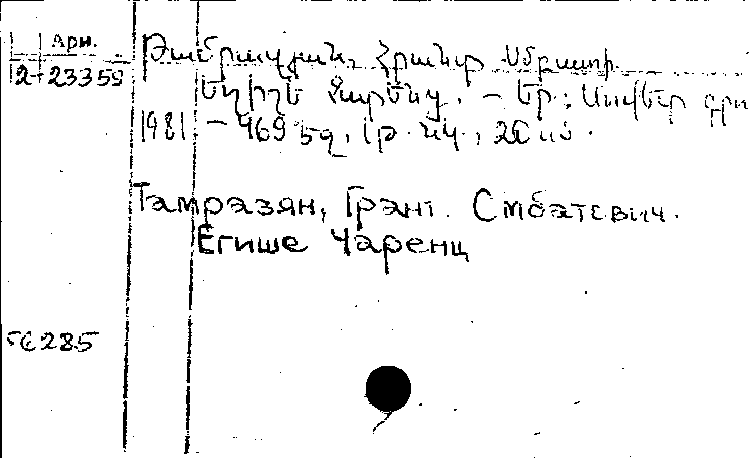 Арм.
12-23359
Թամրազյան, Հրանտ Սմբատի.
Եղիշե Չարենց. – Եր.; Սովետ. գրո
1981. – 469 էջ, նկ., 20 սմ.
Тамразян, Грант. Смбатович.
Егише Чаренц
285